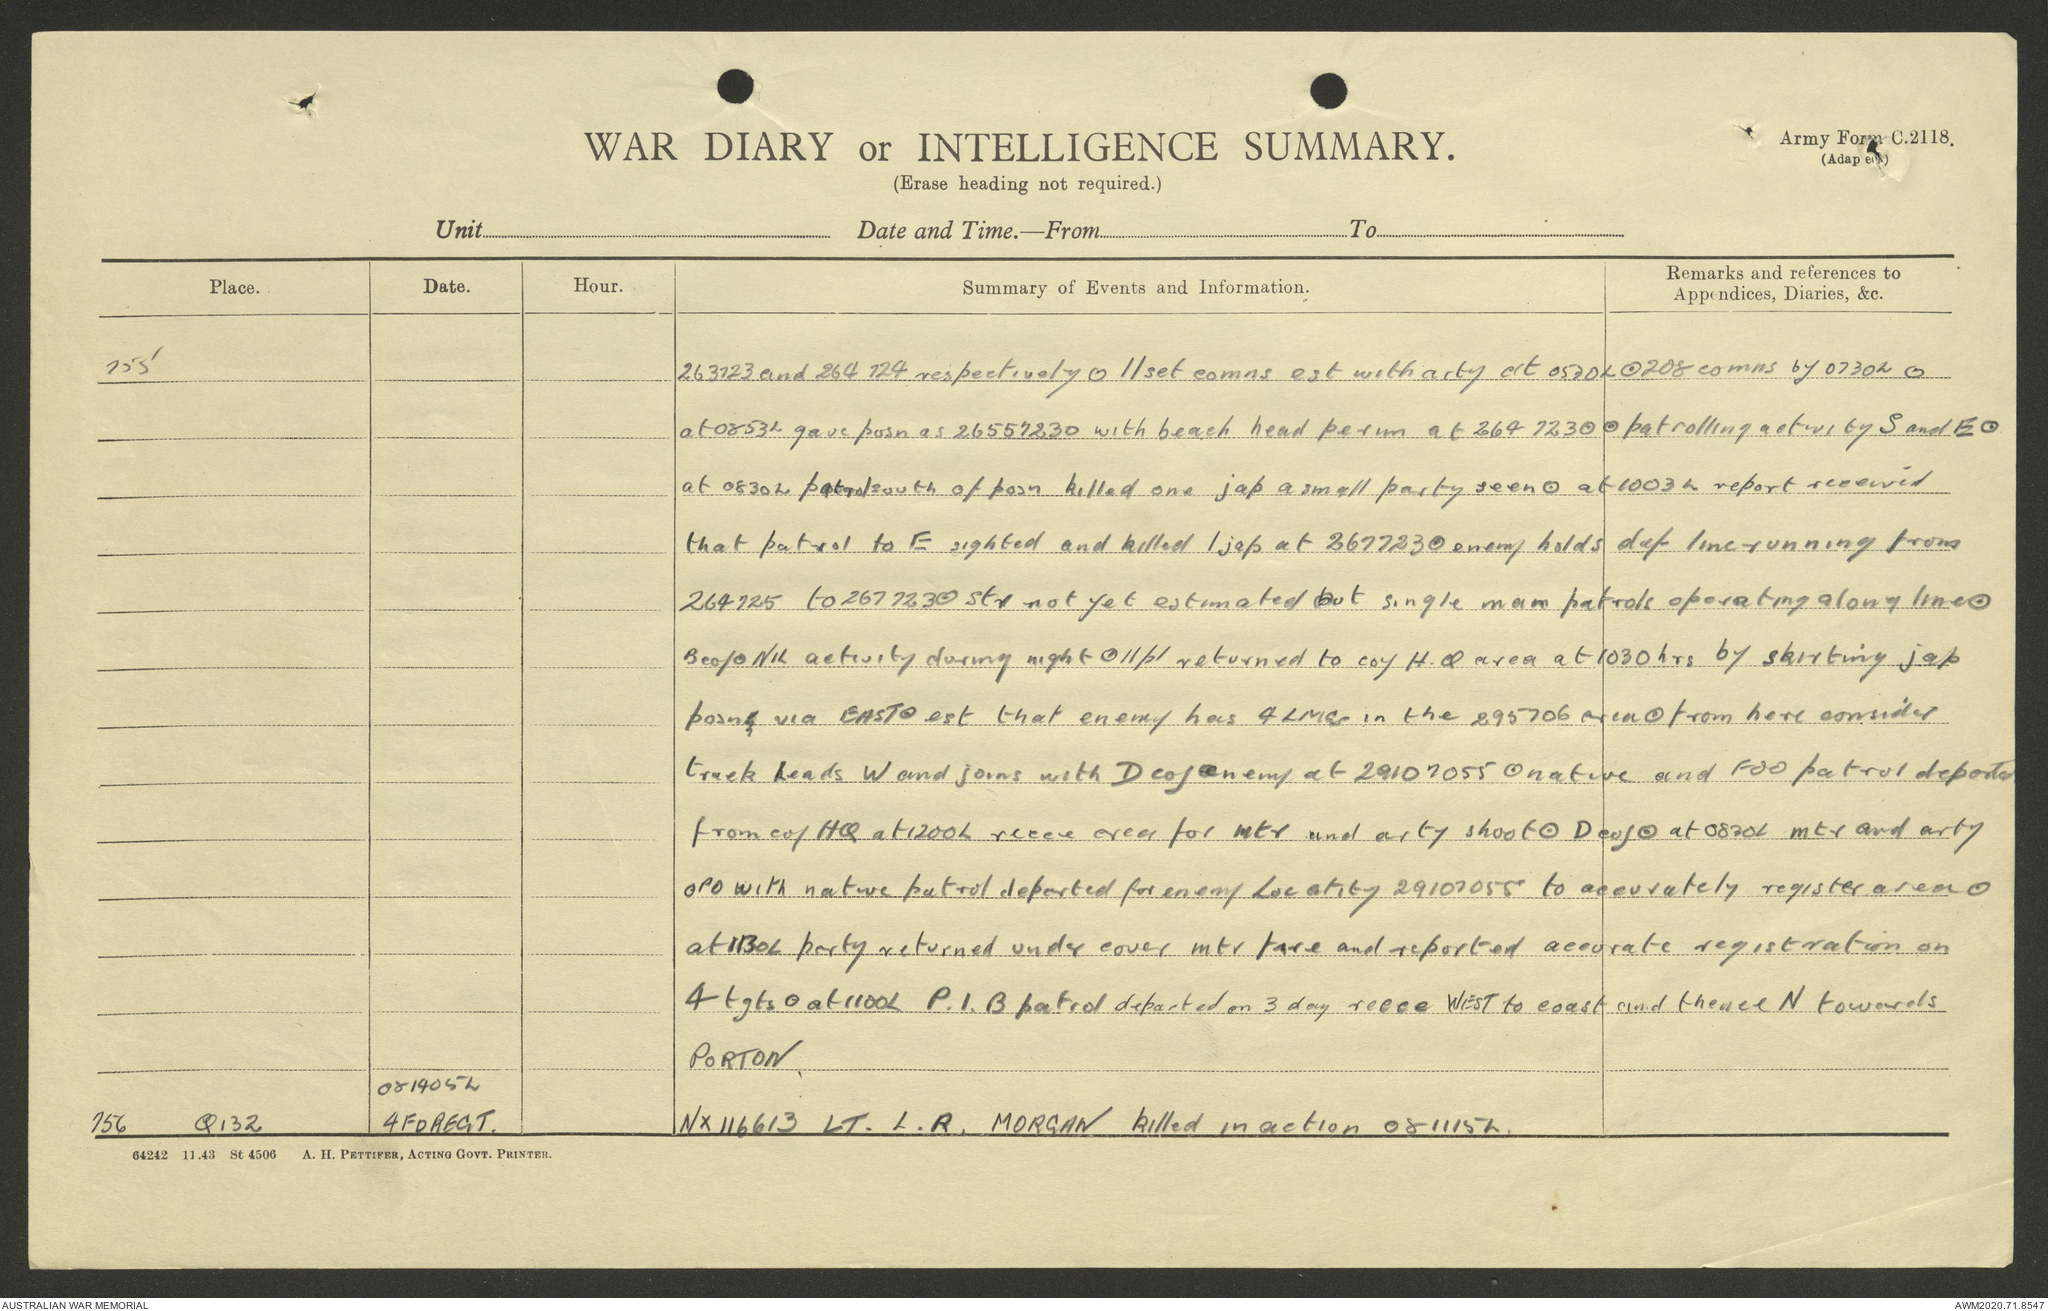 WAR DIARY or INTELLIGENCE SUMMARY.
Army Form C.2118.
(Erase heading not required.)
(Adap ed)
Unit Date and Time.—From To
Place. Date. Hour. Summary of Events and Information. Remarks and references to Appendices, Diaries, &c.
755 263723 and 264 724 respectively ⊙ 11 set comns est with arty at 0530L ⊙ 208 comns by 0730L ⊙
at 0853L gave posn as 26557230 with beach head perim at 264 723 ⊙ ⊙ patrolling activity S and E ⊙
at 0830L patrol south of posn killed one jap a small party seen ⊙ at 1003L report received
that patrol to E sighted and killed 1 jap at 267723 ⊙ enemy holds def line running from
264725 to 267723 ⊙ str not yet estimated but single man patrols operating along line ⊙
B coy ⊙ NIL activity during night ⊙ 11 pl returned to coy H.Q area at 1030 hrs by skirting jap
posns via EAST ⊙ est that enemy has 4 LMGs in the 295706 area ⊙ from here consider
track leads W and joins with D coy enemy at 29107055 ⊙ native and FOO patrol departed
from coy HQ at 1200L recce area for mtr and arty shoot ⊙ D coy ⊙ at 0830L mtr and arty
OPO with native patrol departed for enemy Locality 29107055 to accurately register area ⊙
at 1130L party returned under cover mtr fire and reported accurate registration on
4 tgts ⊙ at 1100L P.I.B patrol departed on 3 day recce WEST to coast and thence N towards
PORTON.
081405L
756 Q132 4 FD REGT. NX116613 LT. L.R. MORGAN killed in action 081115L.
64242 11.43 St 4506 A. H. PETTIFER, ACTING GOVT. PRINTER.
AUSTRALIAN WAR MEMORIAL AWM2020.71.8547